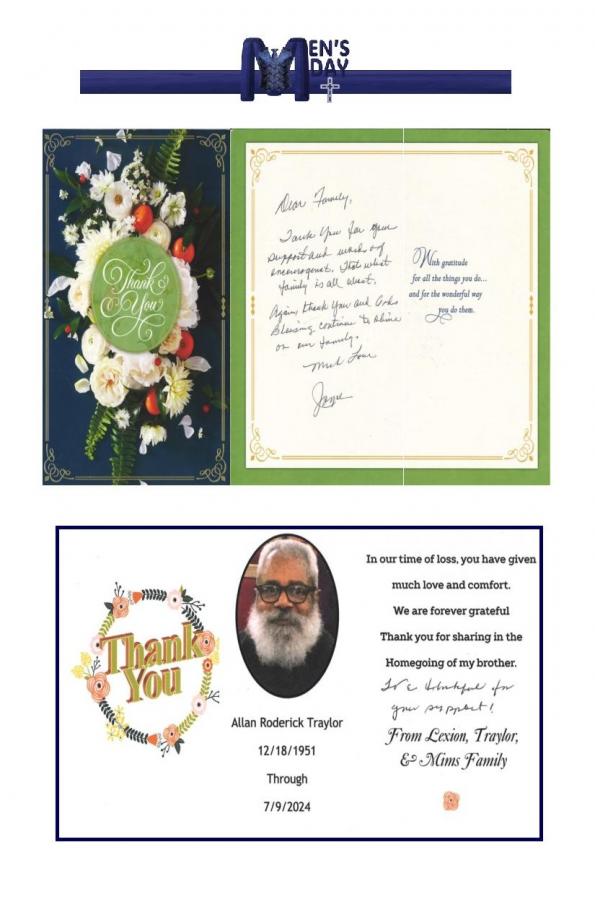 MEN'S
DAY
Thank
& You
Dear Family,
Thank You for your
support and words of
encouragement. That what
family is all about.
Again, thank You and Gods
Blessing continue to shine
on our family.
Much Love
With gratitude
for all the things you do...
and for the wonderful way
you do them.
Thank
You
Allan Roderick Traylor
12/18/1951
Through
7/9/2024
In our time of loss, you have given
much love and comfort.
We are forever grateful
Thank you for sharing in the
Homegoing of my brother.
for
your support!
From Lexion, Traylor,
& Mims Family